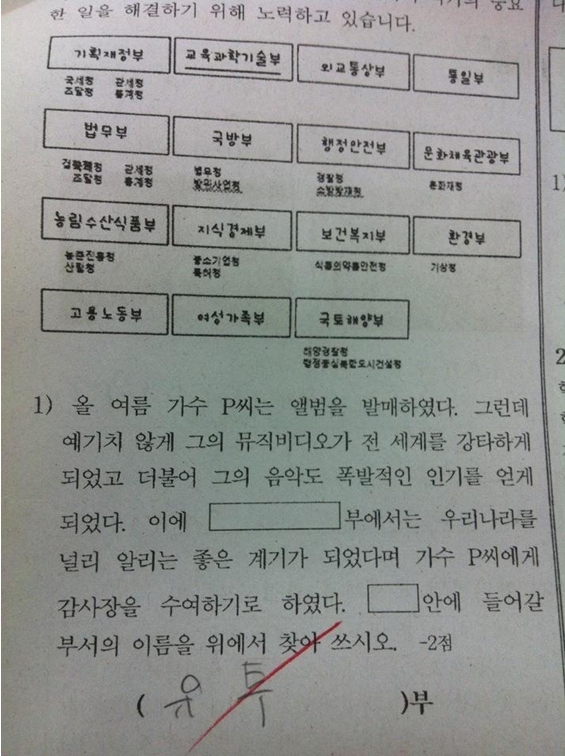 한 일을 해결하기 위해 노력하고 있습니다.
기획재정부 교육과학기술부 외교통상부 통일부
국세청 관세청
조달청 통계청
법무부 국방부 행정안전부 문화체육관광부
검찰청 관세청 병무청 경찰청 문화재청
조달청 통계청 방위사업청 소방방재청
농림수산식품부 지식경제부 보건복지부 환경부
농촌진흥청 중소기업청 식품의약품안전청 기상청
산림청 특허청
고용노동부 여성가족부 국토해양부
해양경찰청
행정중심복합도시건설청
1) 올 여름 가수 P씨는 앨범을 발매하였다. 그런데
예기치 않게 그의 뮤직비디오가 전 세계를 강타하게
되었고 더불어 그의 음악도 폭발적인 인기를 얻게
되었다. 이에 부에서는 우리나라를
널리 알리는 좋은 계기가 되었다며 가수 P씨에게
감사장을 수여하기로 하였다. 안에 들어갈
부서의 이름을 위에서 찾아 쓰시오. -2점
( 유 투 )부
1)
2